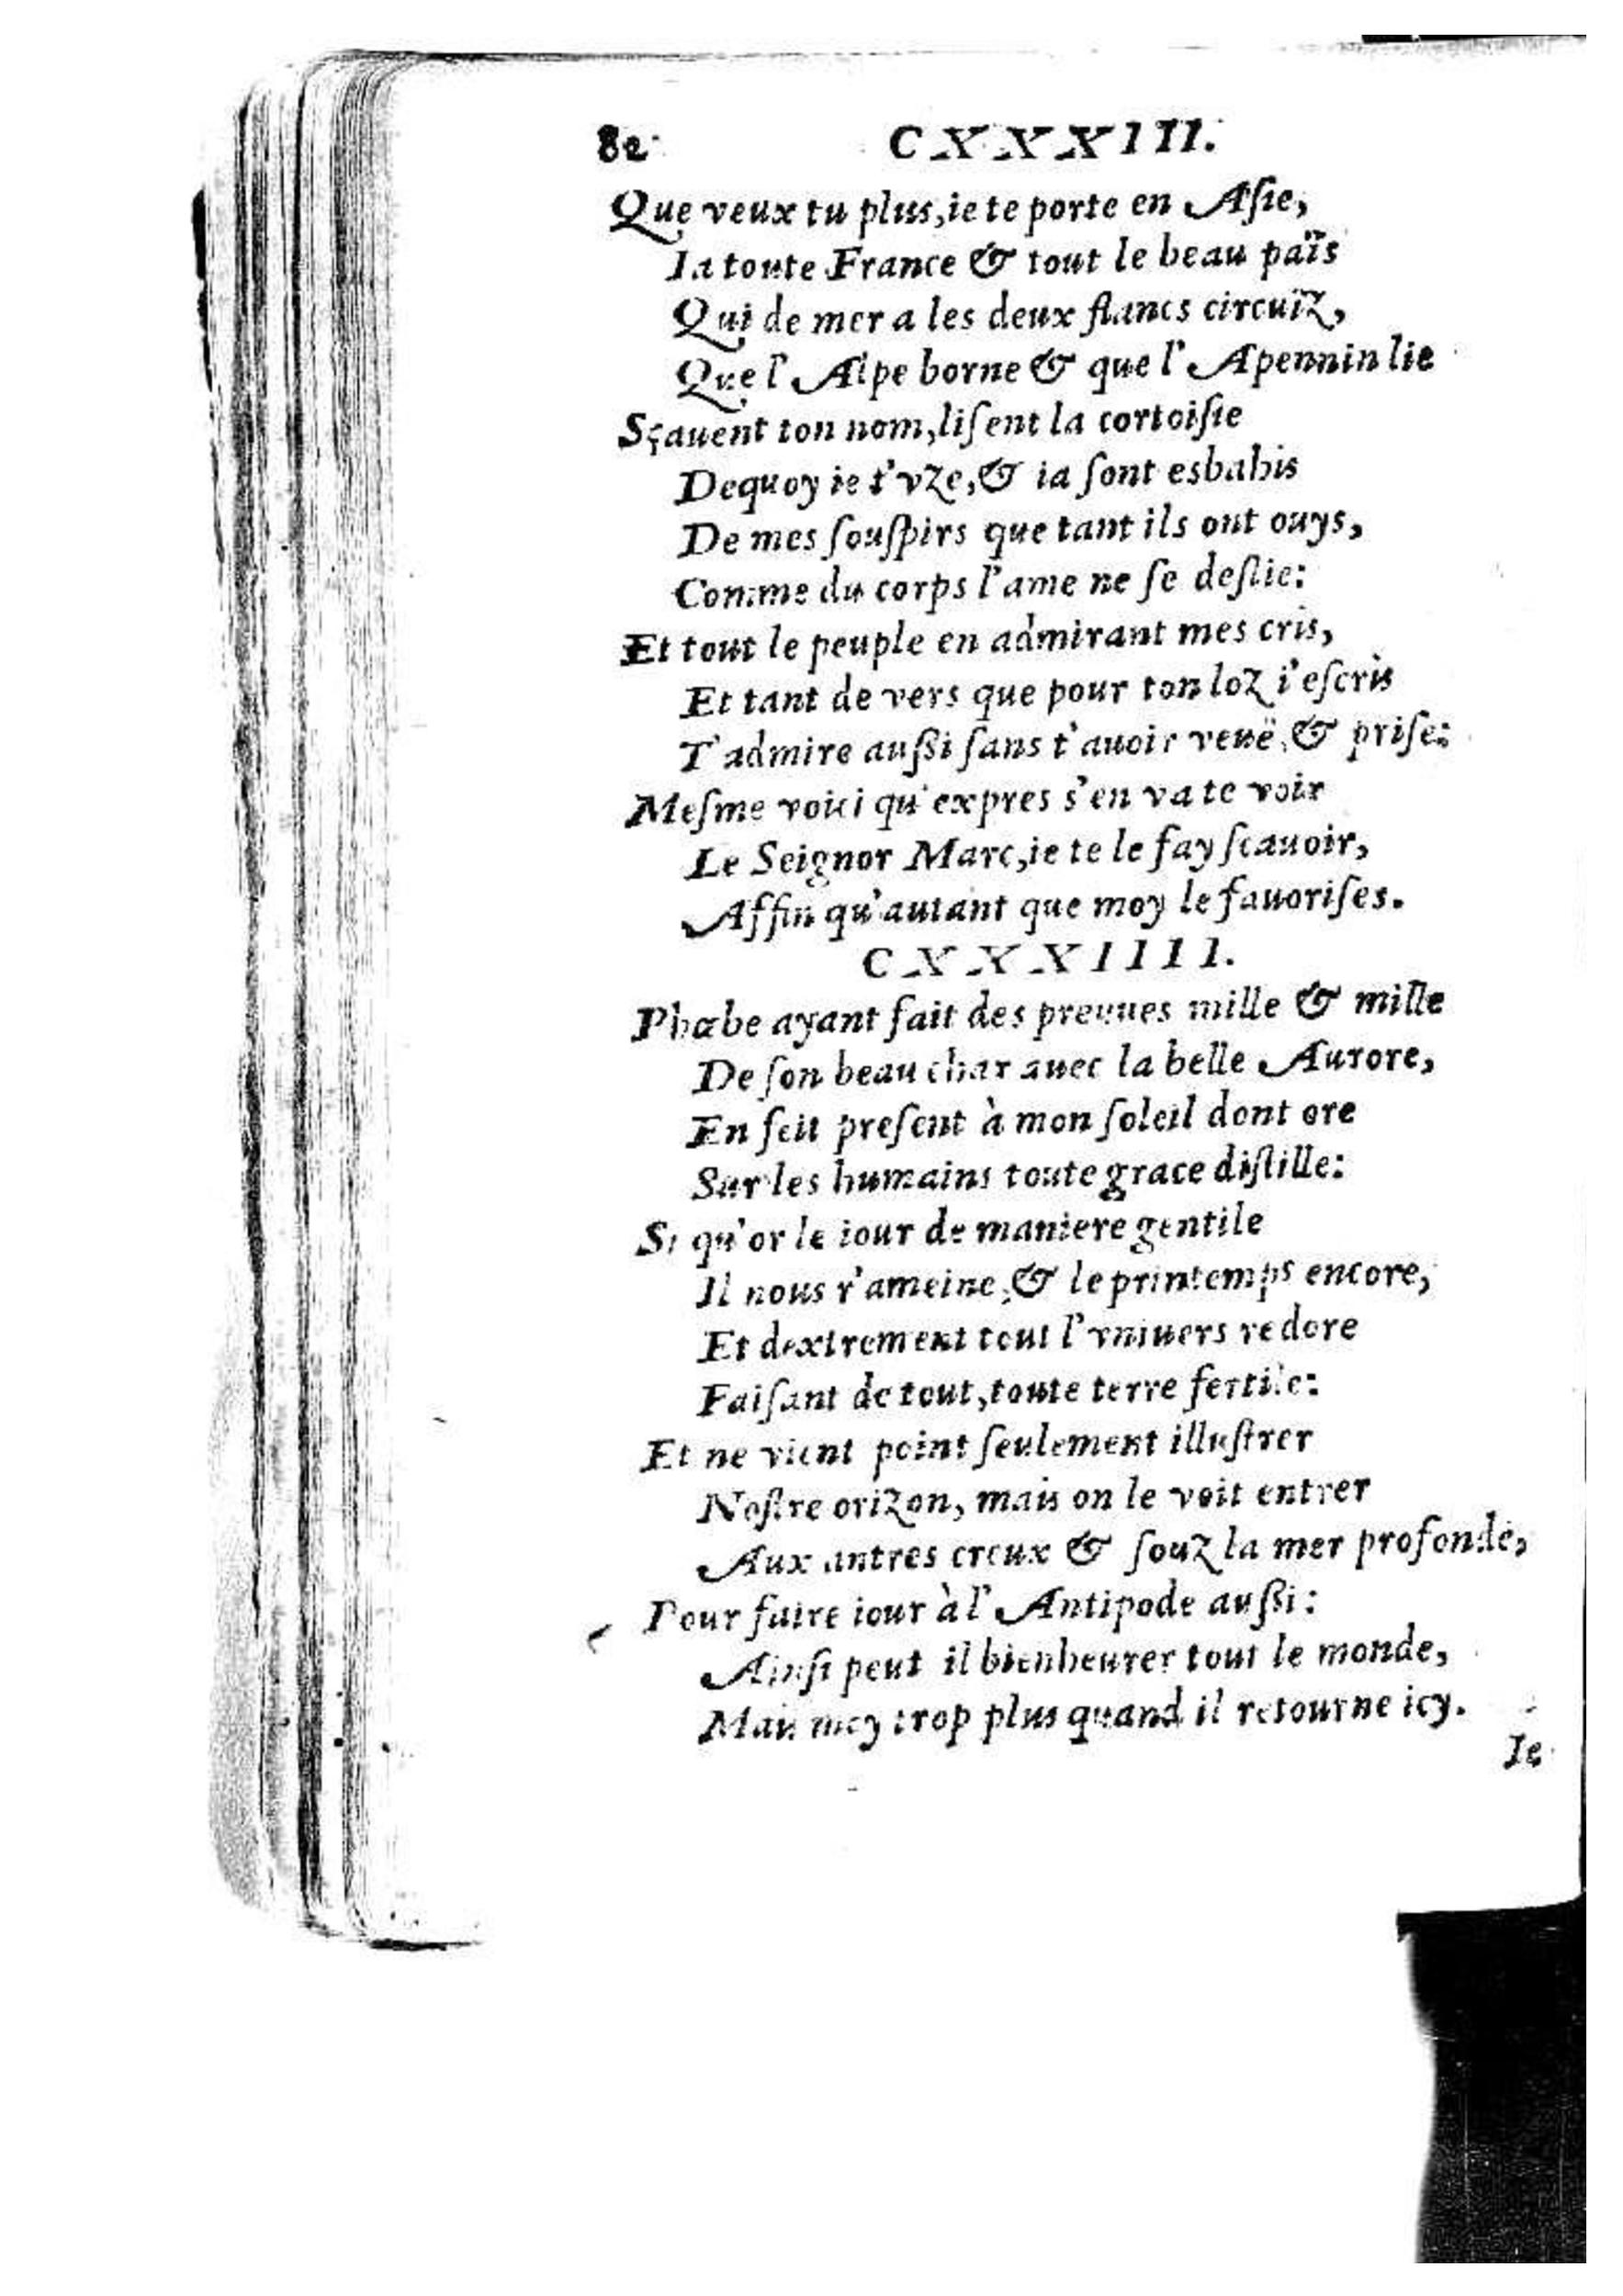 80 CXXXIII.
Que veux tu plus, ie te porte en Asie,
Ia toute France & tout le beau païs
Qui de mer a les deux flancs circuïz,
Que l'Alpe borne & que l'Apennin lie
Sçauent ton nom, lisent la cortoisie
Dequoy ie t'vze, & ia sont esbahis
De mes souspirs que tant ils ont ouys,
Comme du corps l'ame ne se deslie:
Et tout le peuple en admirant mes cris,
Et tant de vers que pour ton loz i'escris
T'admire aussi sans t'auoir veuë, & prise:
Mesme voici qu'expres s'en va te voir
Le Seignor Marc, ie te le fay scauoir,
Affin qu'autant que moy le fauorises.
CXXXIIII.
Phœbe ayant fait des preuues mille & mille
De son beau char auec la belle Aurore,
En feit present à mon soleil dont ore
Sur les humains toute grace distille:
Si qu'or le iour de maniere gentile
Il nous r'ameine, & le printemps encore,
Et dextrement tout l'vniuers redore
Faisant de tout, toute terre fertile:
Et ne vient point seulement illustrer
Nostre orizon, mais on le voit entrer
Aux antres creux & souz la mer profonde,
Pour faire iour à l'Antipode aussi:
Ainsi peut il bienheurer tout le monde,
Mais moy trop plus quand il retourne icy.
Ie